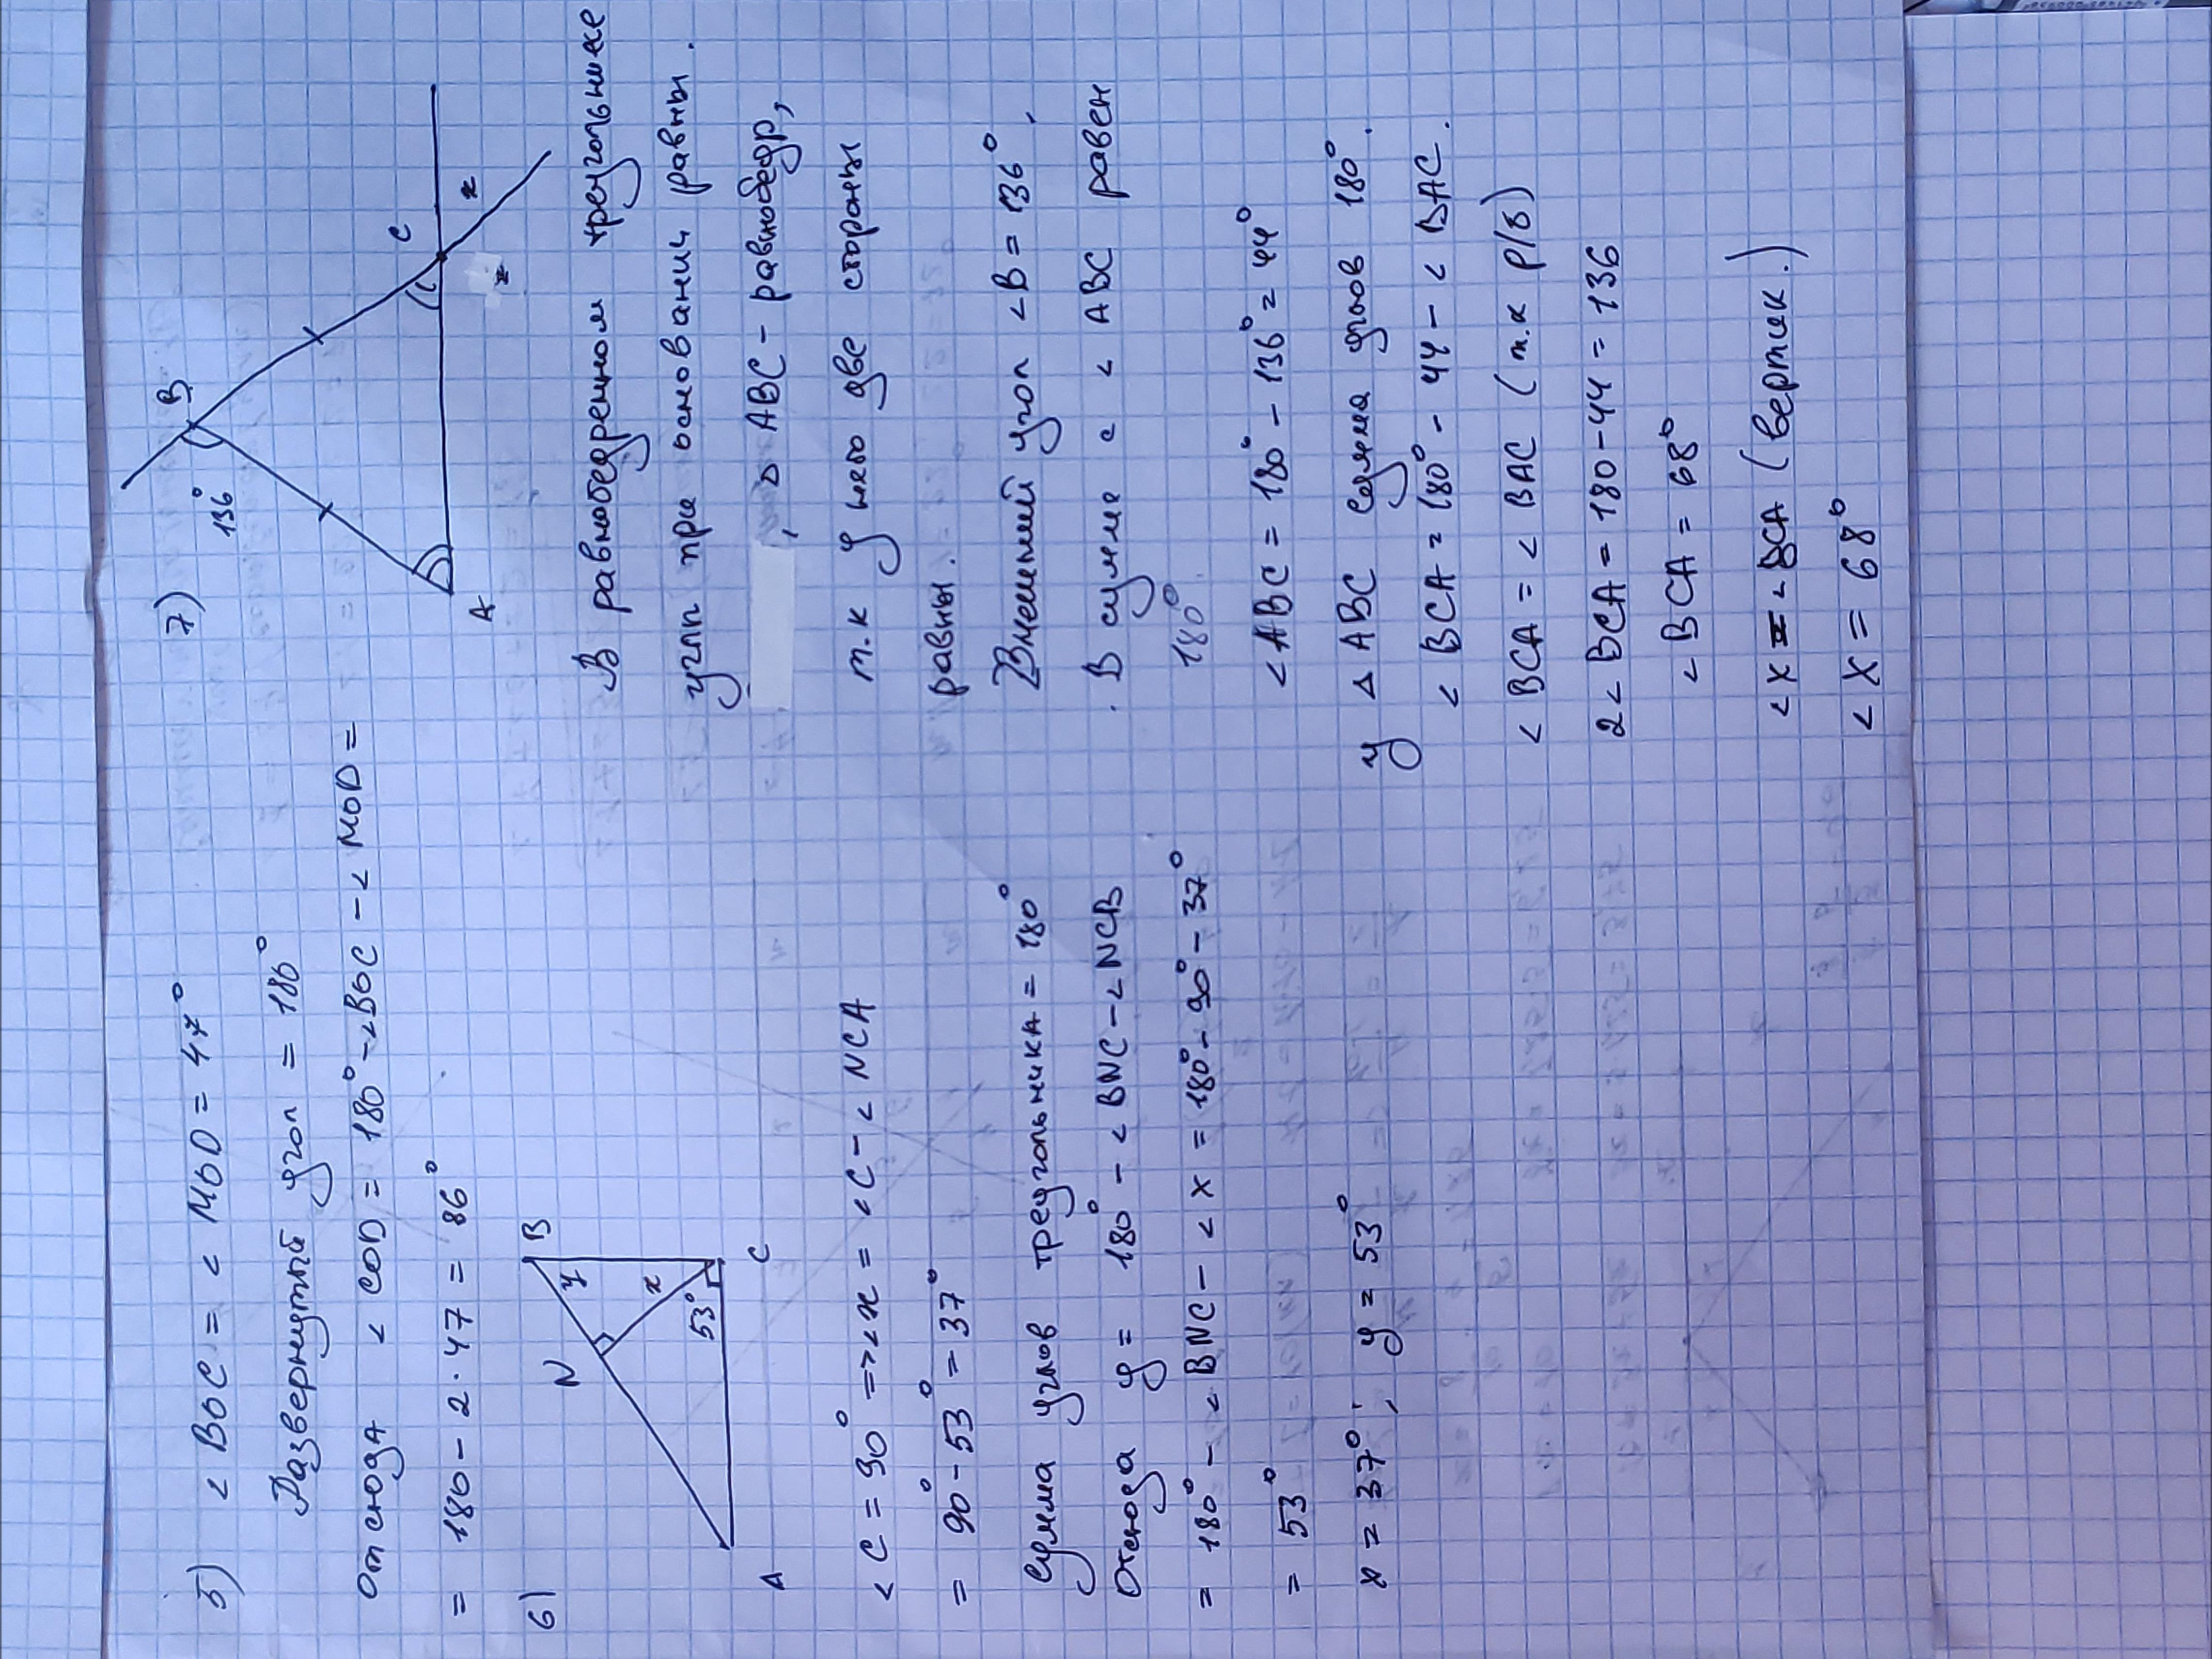 5) < BOC = < MOD = 47°
Развернутый угол = 180°
Отсюда < COD = 180° - < BOC - < MOD =
= 180 - 2 · 47 = 86°
6)
B
N
y
x
53°
C
A
< C = 90° => < x = < C - < NCA
= 90° - 53° = 37°
Сумма углов треугольника = 180°
Отсюда y = 180° - < BNC - < NCB
= 180° - < BNC - < x = 180° - 90° - 37°
= 53°
x = 37°; y = 53°
7)
B
136°
C
x
A
В равнобедренном треугольнике
углы при основании равны.
, △ ABC - равнобедр,
т.к у него две стороны
равны.
Внешний угол < B = 136°,
. В сумме с < ABC равен
180°.
< ABC = 180° - 136° = 44°
У △ ABC сумма углов 180°.
< BCA = 180° - 44 - < BAC.
< BCA = < BAC (т.к р/б)
2 < BCA = 180 - 44 = 136
< BCA = 68°
< x = < BCA (вертик.)
< x = 68°